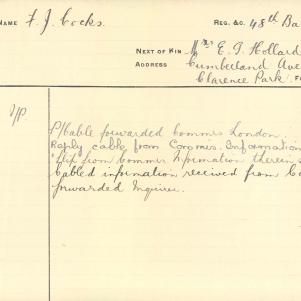 NAME F. J. Cocks. REG. &C. 48th Ba
NEXT OF KIN Mrs E. J. Hollard
ADDRESS Cumberland Ave
Clarence Park.
P/Cable forwarded Commrs London.
Reply cable from Commrs. Information
slip from Commrs Information therein
Cabled information received from Co
forwarded Inquirer.